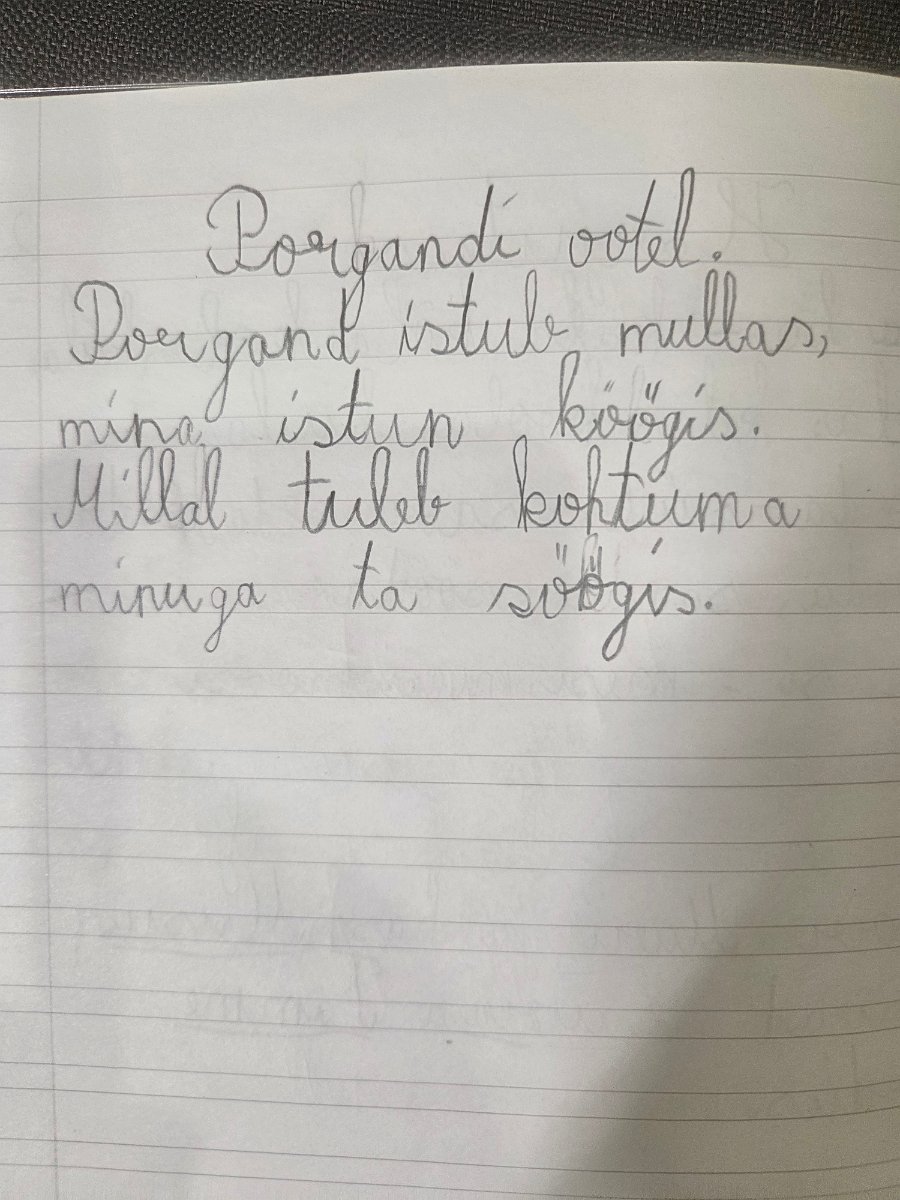 Porgandi ootel.
Porgand istub mullas,
mina istun köögis.
Millal tuleb kohtuma
minuga ta söögis.